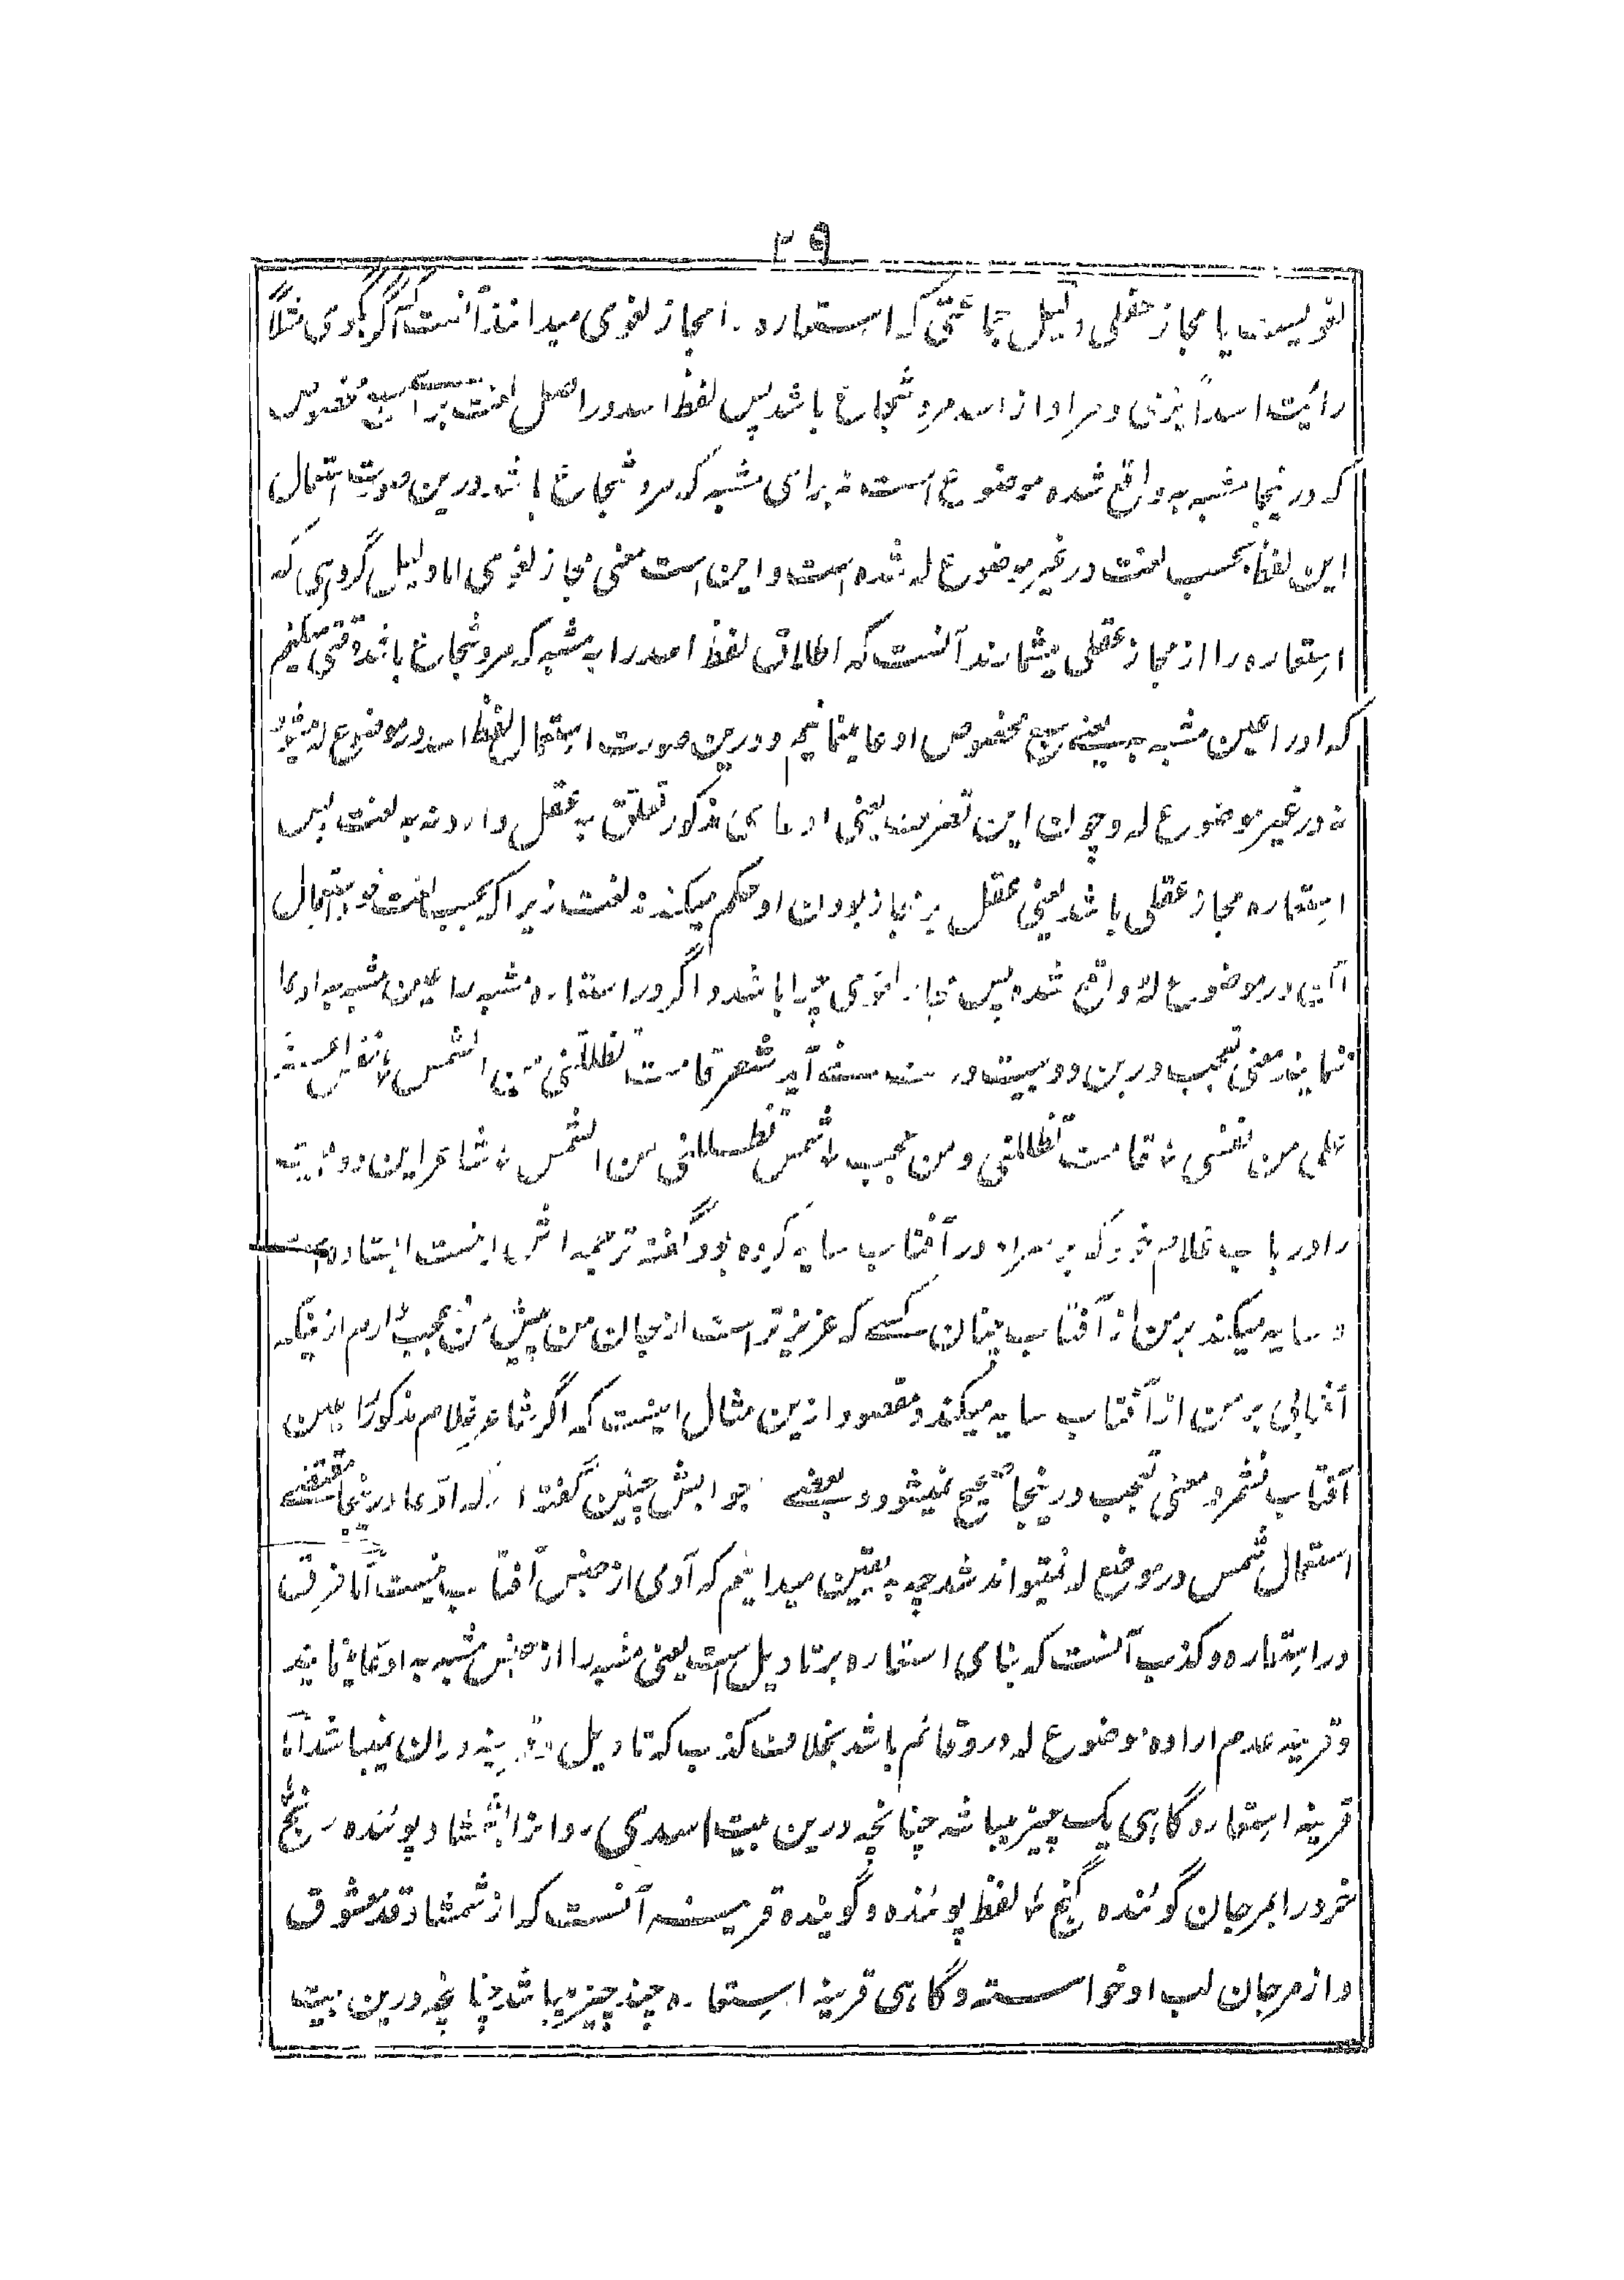 ۳۹
لغویست یا مجاز عقلی دلیل جماعتی که استعاره را مجاز لغوی میدانند آنست که اگر گوی مثلاً
رایت اسداً یرمی و مراد از اسد مرد شجاع باشد پس لفظ اسد در اصل لغت برای سبع مخصوص
که در ینجا مشبه به واقع شده موضوع است نه برای مشبه که مرد شجاع باشد درین صورت استعمال
این لفظ بحسب لغت در غیر موضوع له شده است و این است معنی مجاز لغوی اما دلیل گروهی که
استعاره را از مجاز عقلی میشمارند آنست که اطلاق لفظ اسد را بر مشبه که مرد شجاع باشد وقتی میکنیم
که او را عین مشبه به یعنے سبع مخصوص ادعا مینمائیم و درین صورت استعمال لفظ اسد در موضوع له شد
نه در غیر موضوع له و چون این تصرف یعنی ادعای مذکور تعلق به عقل دارد نه به لغت پس
استعاره مجاز عقلی باشد یعنی عقل بر مجاز بودن او حکم میکند نه لغت زیرا که بحسب لغت خود استعمال
در موضوع له واقع شده پس مجاز لغوی چرا باشد و اگر در استعاره مشبه را عین مشبه به ادعا
ننمایند معنی تعجب درین دو بیت درست نمی آید شعر قامت تظللنی من الشمس ٭ نفس اعز
علی من نفسی ٭ قامت تظللنی و من عجب ٭ شمس تظللنی من الشمس ٭ شاعر این دو بیت
را در باب غلام خود که بر سرا و در آفتاب سایه کرده بود گفته ترجمه اش اینست ایستاده است
و سایه میکند بر من از آفتاب چنان کسے که عزیز تر است از جان من پیش من عجب دارم از ینکه
آفتابی بر من از آفتاب سایه میکند و مقصود از ین مثال اینست که اگر شاعر غلام مذکور را عین
آفتاب نشمرد معنی تعجب در ینجا صحیح نمیشود و بعضے جوابش چنین گفته اند که ادعا در ینجا مقتضے
استعمال شمس در موضع له نمیتواند شد چه به یقین میدانیم که آدمی از جنس آفتاب نیست اما فرق
در استعاره و کذب آنست که بنای استعاره بر تاویل است یعنی مشبه را از جنس مشبه به ادعا نمایند
و قرینه عدم اراده موضوع له در و قائم باشد بخلاف کذب که تاویل و قرینه دران نمیباشد اما
قرینه استعاره گاهی یک چیز میباشد چنانچه درین بیت اسدی روانرا بشمشاد پوئنده رنج
خرد را بمرجان گوئنده گنج ٭ لفظ پوئنده و گوینده قرینه آنست که از شمشاد قد معشوق
و از مرجان لب او خواسته و گاهی قرینه استعاره چند چیز میباشد چنانچه درین بیت